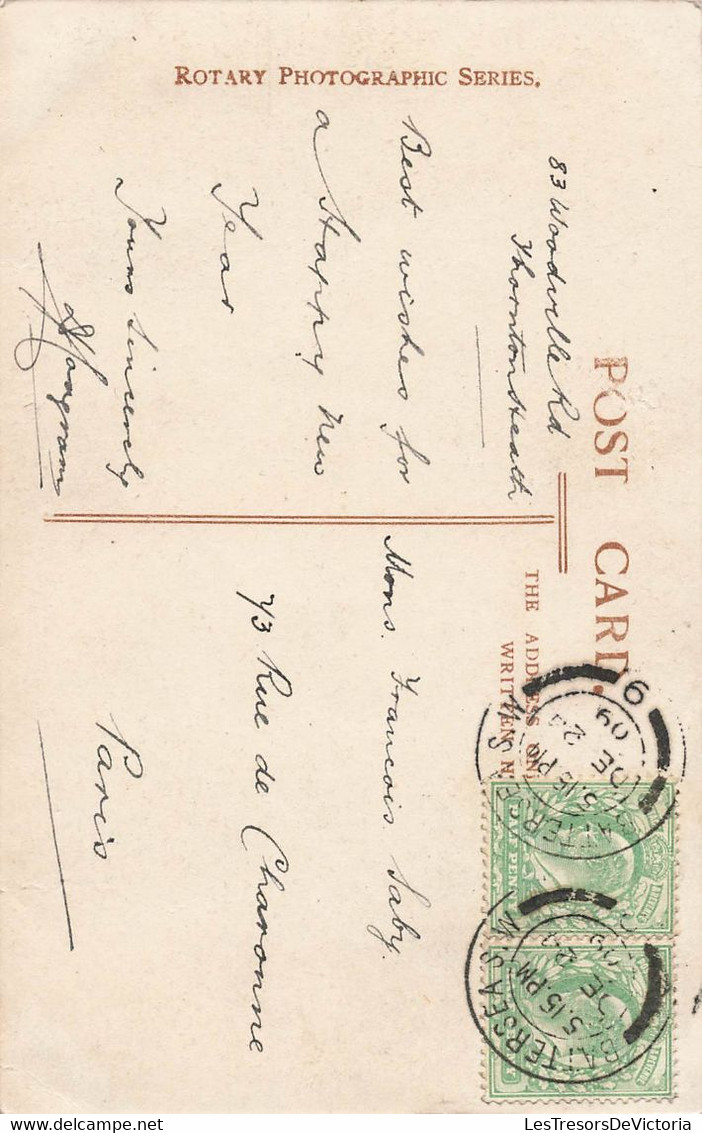 ROTARY PHOTOGRAPHIC SERIES.
POST CARD.
THE ADDRESS ON
WRITTEN H
83 Woodville Rd
Thornton Heath
Best wishes for
a Happy New
Year
Yours sincerely
Mons. Francois Saby.
73 Rue de Charonne
Paris
BATTERSEA S.W
5.15 PM
DE 29
09
6
BATTERSEA S.W
5.15 PM
DE 29
09
LesTresorsDeVictoria
delcampe.net